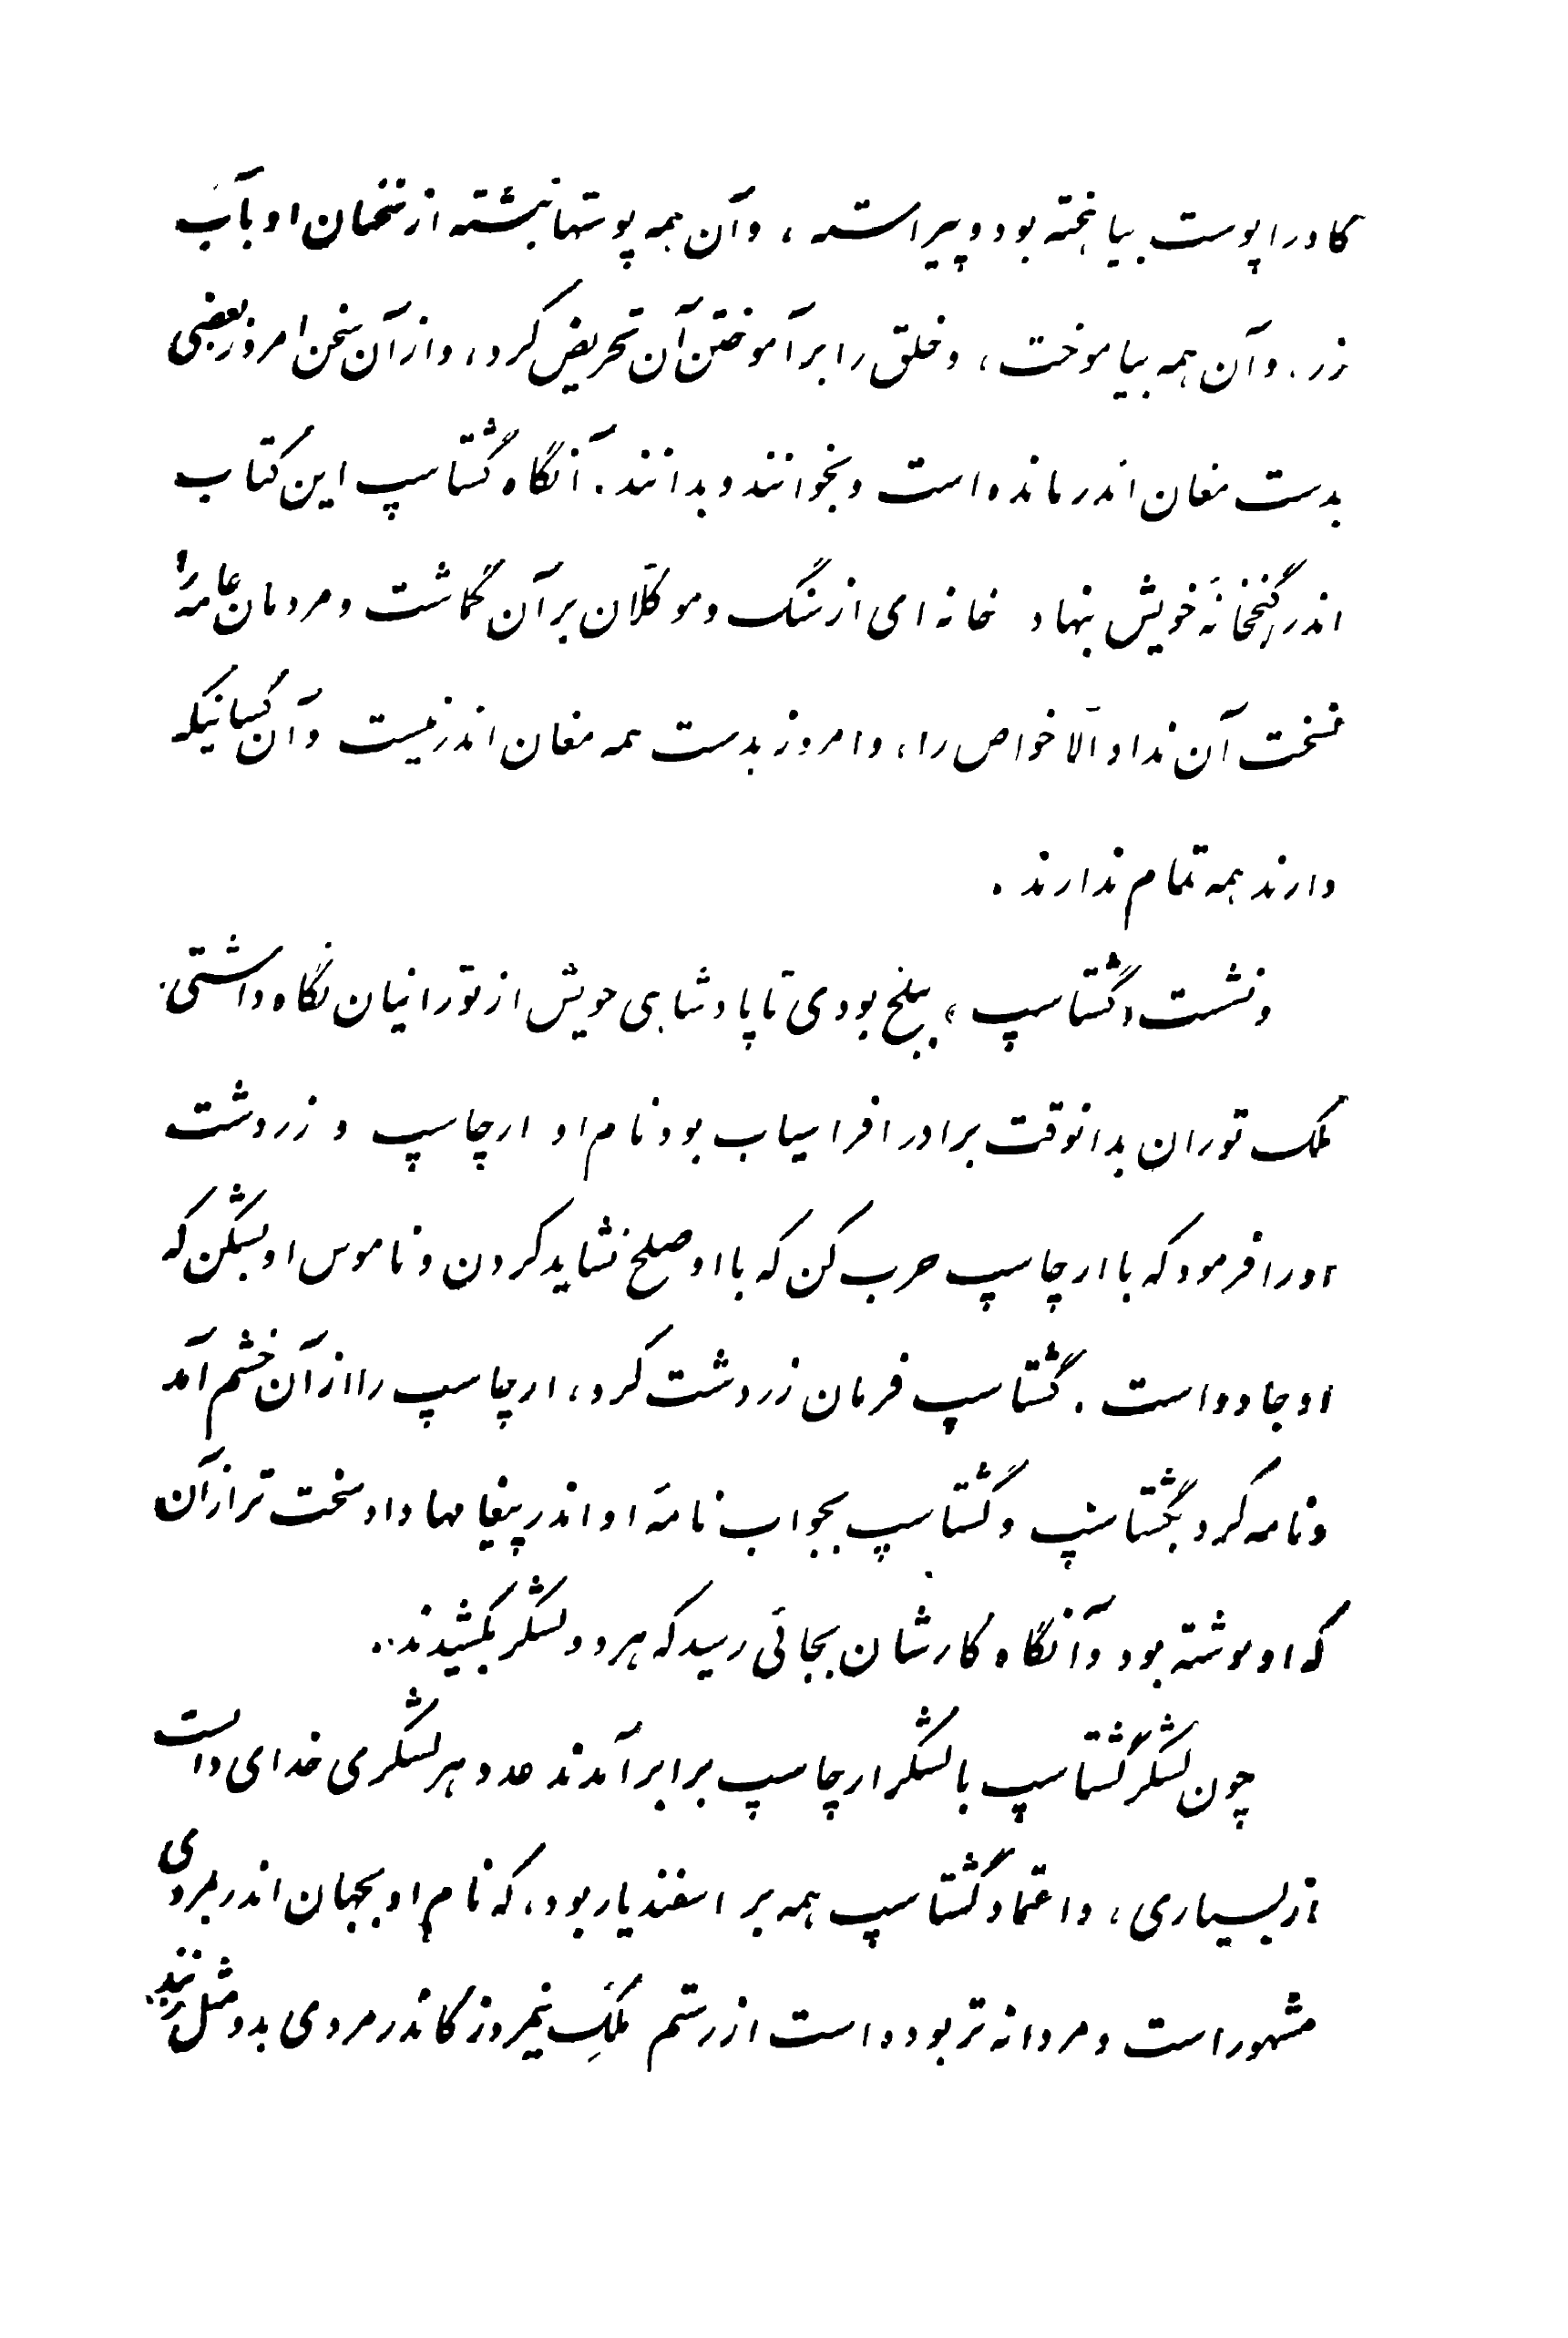 گاو را پوست بیاهخته بود و پیراسته ، و آن همه پوستها نبشته از سخنان او بآب
زر. و آن همه بیاموخت ، و خلق را بر آموختن آن تحریض کرد ، و از آن سخن امروز بعضی
بدست مغان اندر مانده است و بخوانند و بدانند . آنگاه گشتاسپ این کتاب
اندر گنجخانهٔ خویش بنهاد خانه ای از سنگ و موکلّان بر آن گماشت و مردمان عامهٔ را
نسخت آن نداد الّا خواص را ، و امروز بدست همه مغان اندر نیست و آن کسانیکه
دارند همه تمام ندارند .
و نشست «گشتاسپ» ببلخ بودی تا پادشاهی خویش از تورانیان نگاه داشتی .
ملک توران بدانوقت برادر افراسیاب بود نام او ارچاسپ و زردشت
اورا فرمود که با ارچاسپ حرب کن که با او صلح نشاید کردن و ناموس او بشکن که
او جادو است . گشتاسپ فرمان زردشت کرد ، ارچاسپ را از آن خشم آمد
و نامه کرد بگشتاسپ و گشتاسپ بجواب نامهٔ او اندر پیغامها داد سخت تر از آن
که او نوشته بود و آنگاه کارشان بجائی رسید که هر دو لشکر بکشیدند ..
چون لشکر گشتاسپ با لشکر ارچاسپ برابر آمدند عدد هر لشکری خدای دانست
از بسیاری ، و اعتماد گشتاسپ همه بر اسفندیار بود ، که نام او بجهان اندر بمردی
مشهور است و مردانه تر بوده است از رستم ملکِ نیمروز کاندر مردی بدو مثل زنند .